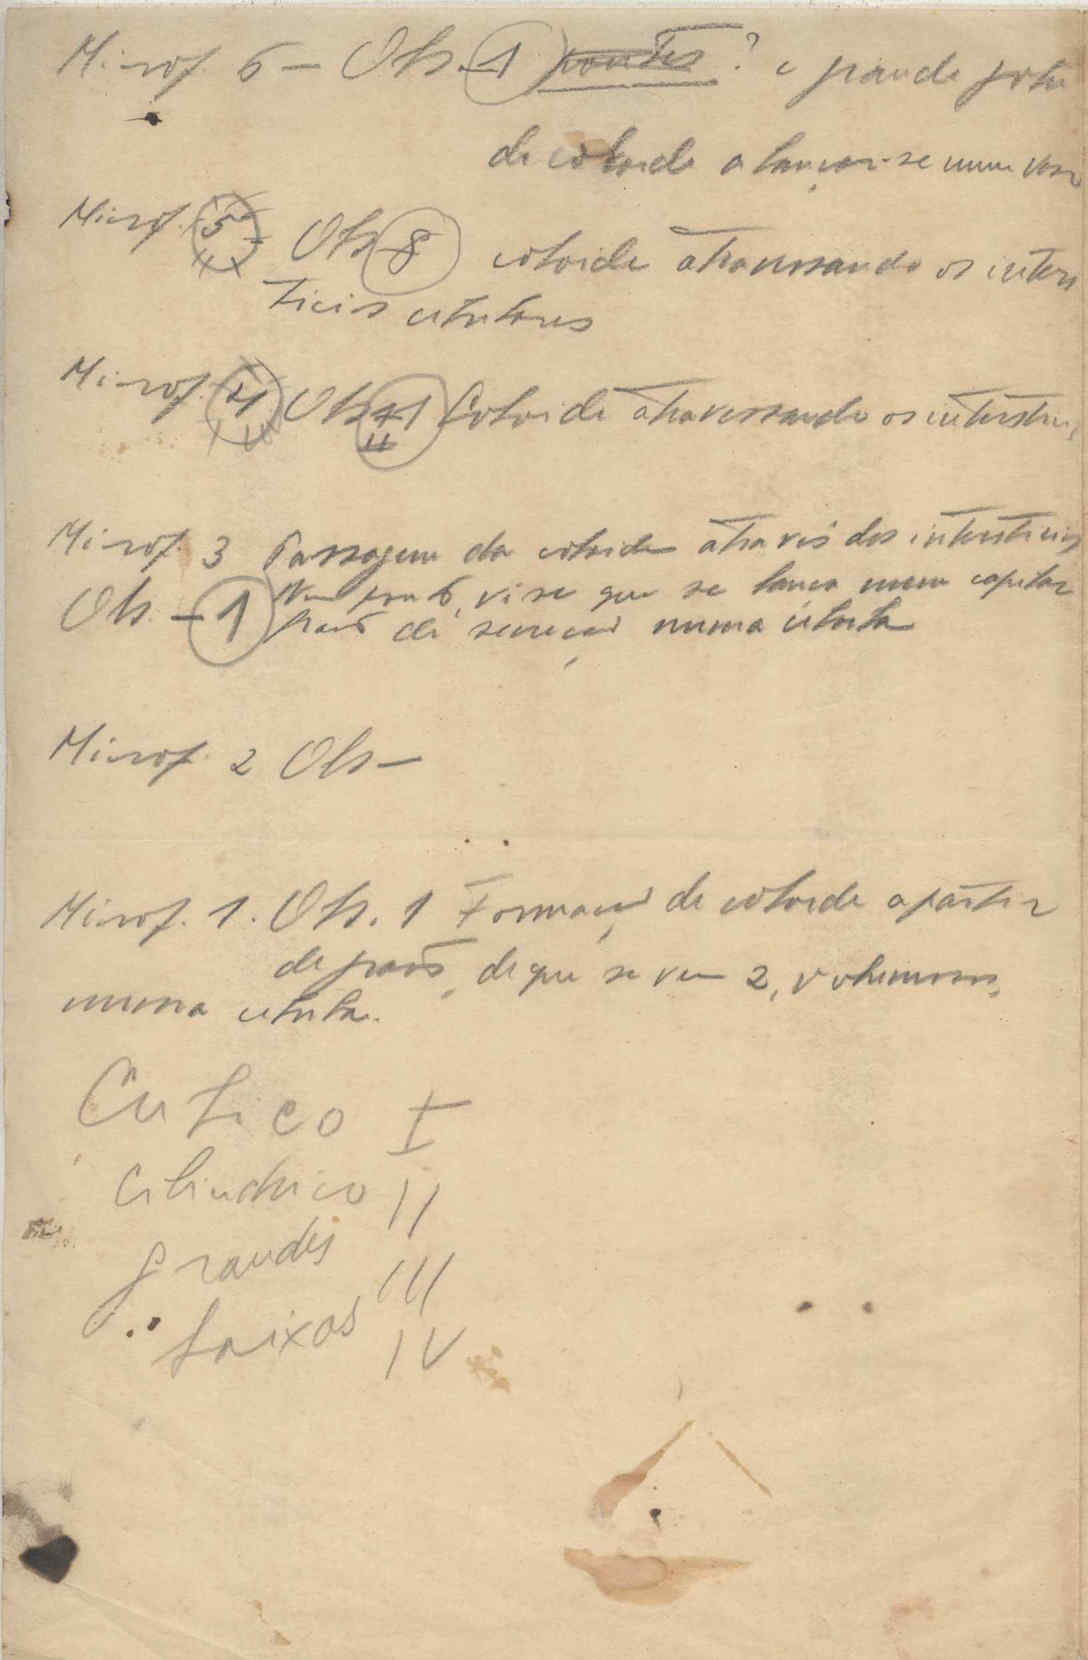 Microf. 6 – Obs. 1 pontes? e grande gota
de coloide a lançar-se num vaso
Microf. 5 – Obs 8 coloide atravessando os inters
ticios celulares
Microf. 4 Obs 1 Coloide atravessando os intersticios
Microf. 3 Passagem da coloide através dos intersticios
Num ponto, vê-se que se lança num capilar
Obs. – 1 Grãos de secreção numa célula
Microf. 2 Obs –
Microf. 1. Obs. 1 Formação de coloide a partir
de grãos, de que se vem 2, volumosos,
numa celula.
Cubico I
Cilindrico II
Grandes III
baixos IV